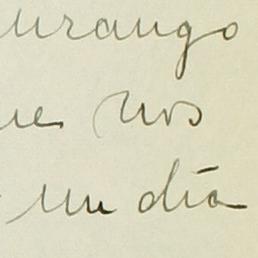 urango
ue nos
un día